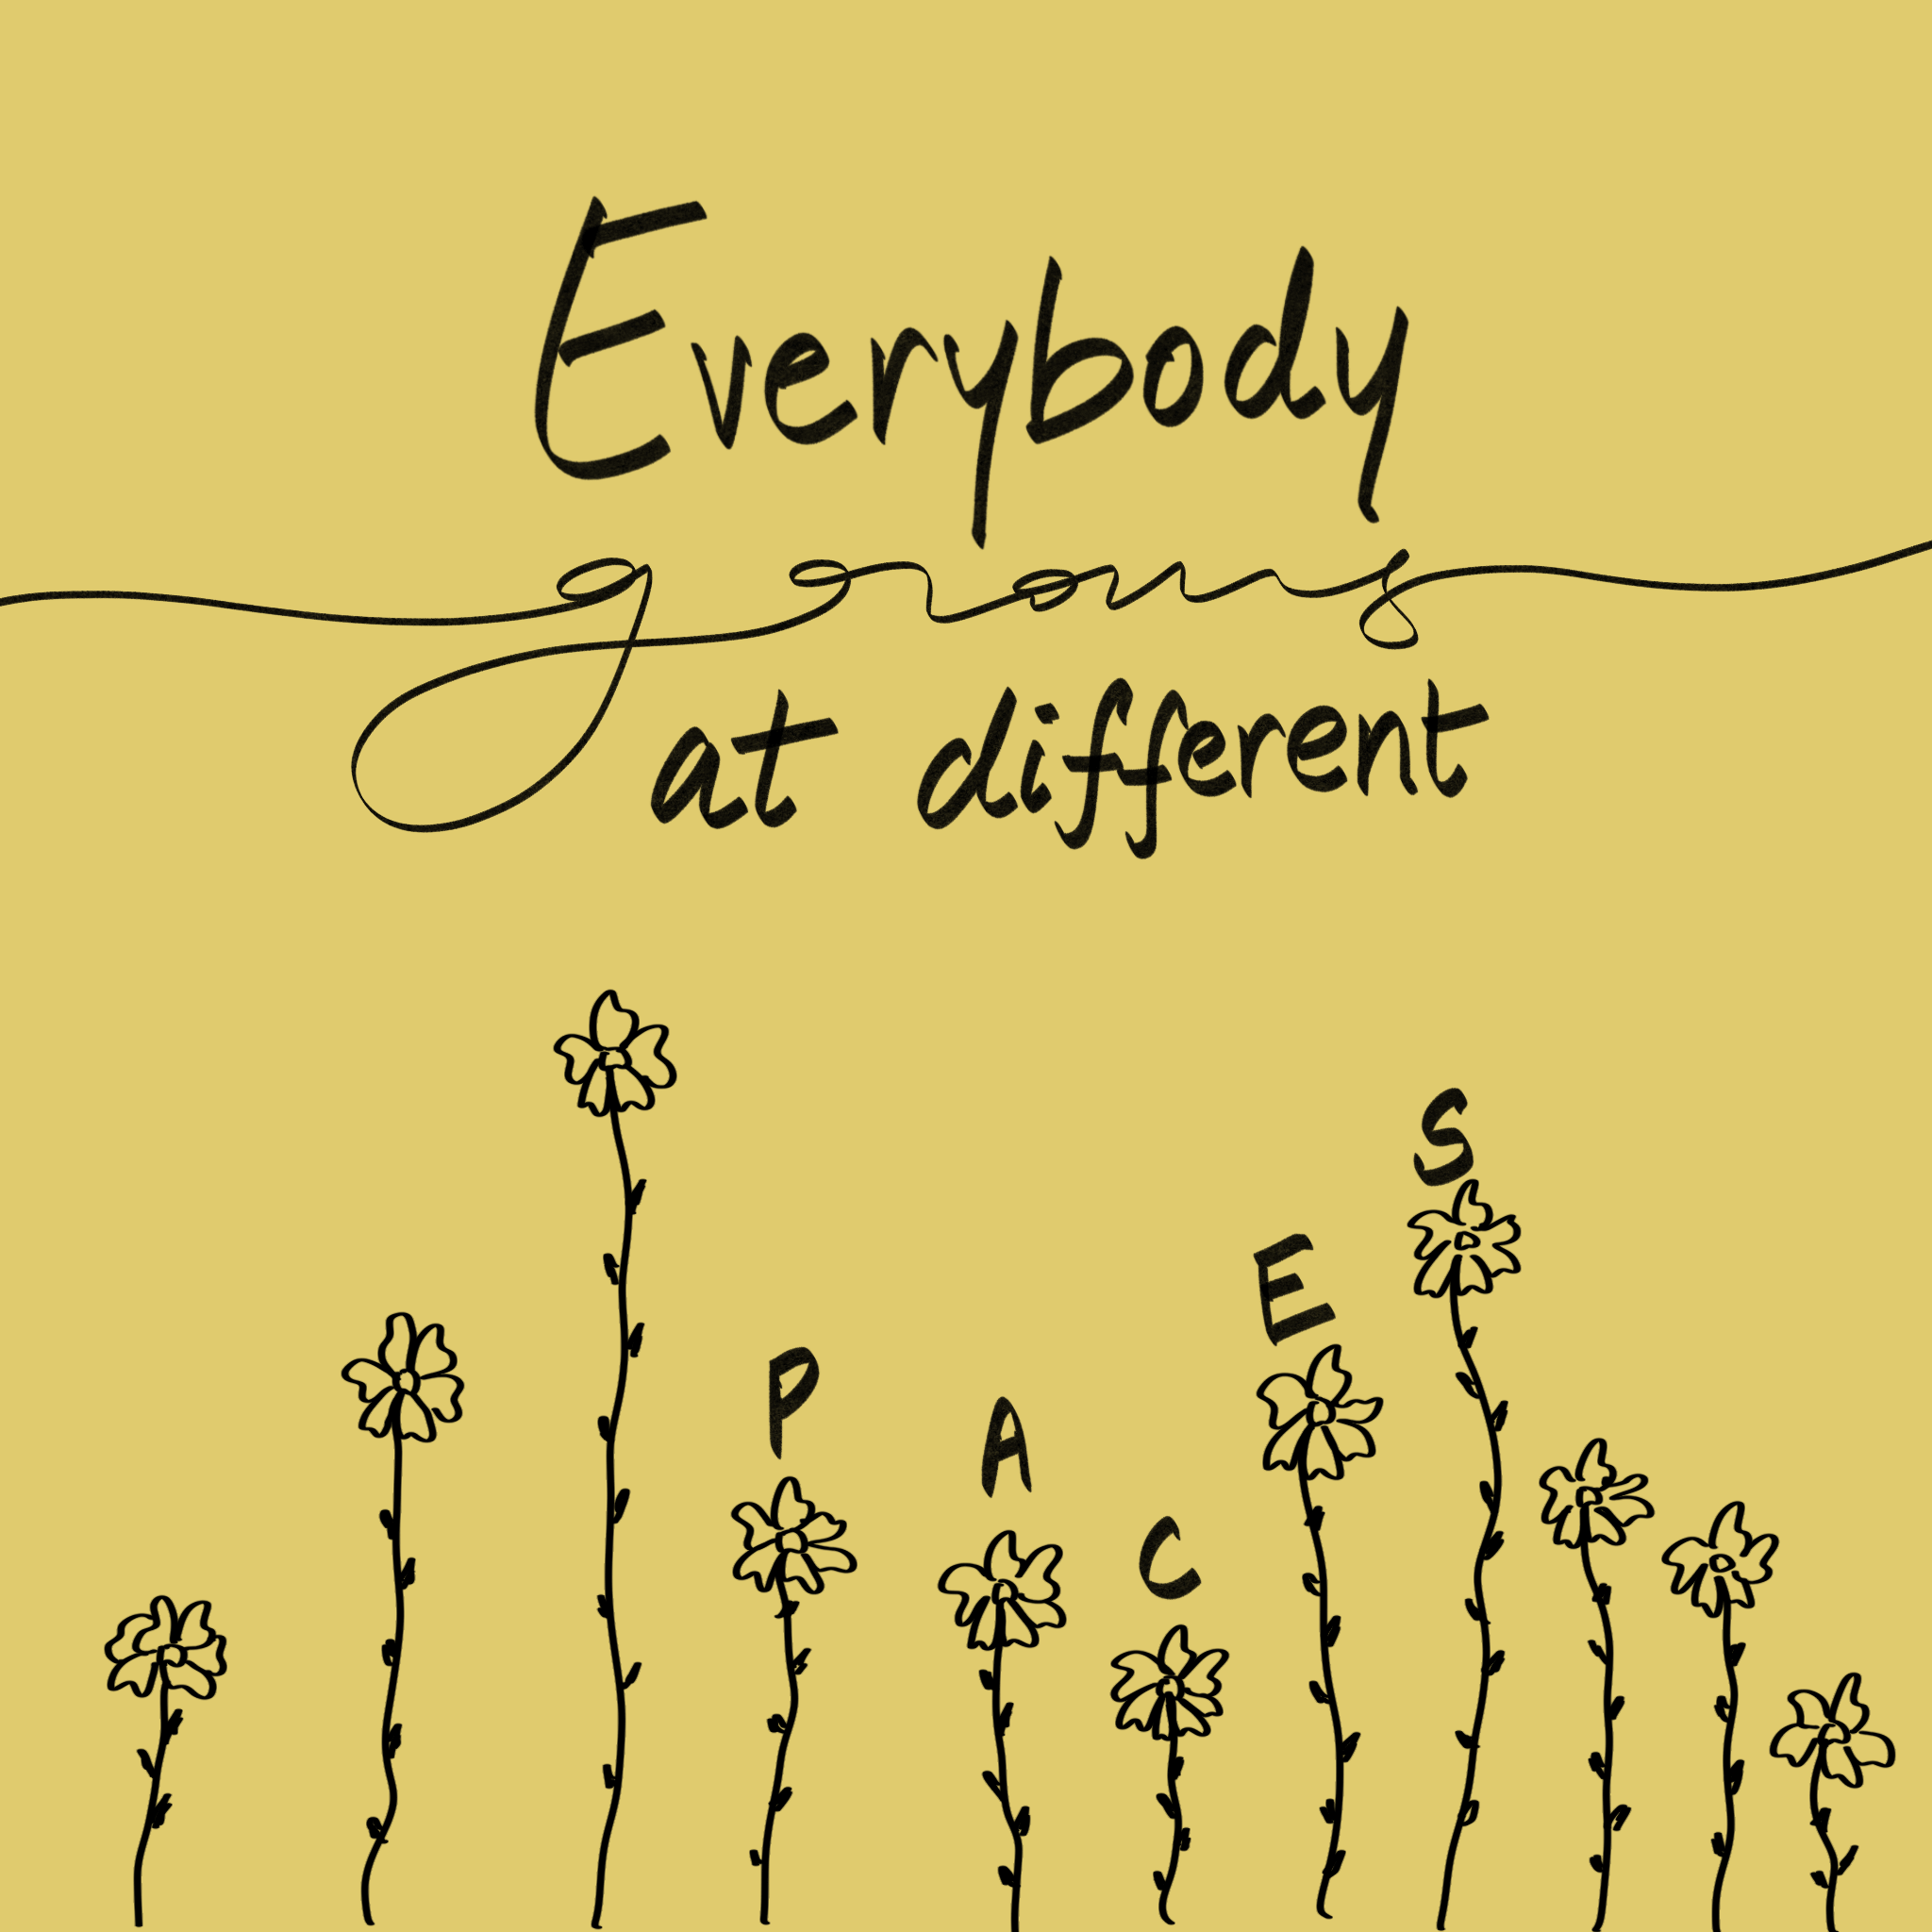 Everybody
grows
at different
PACES